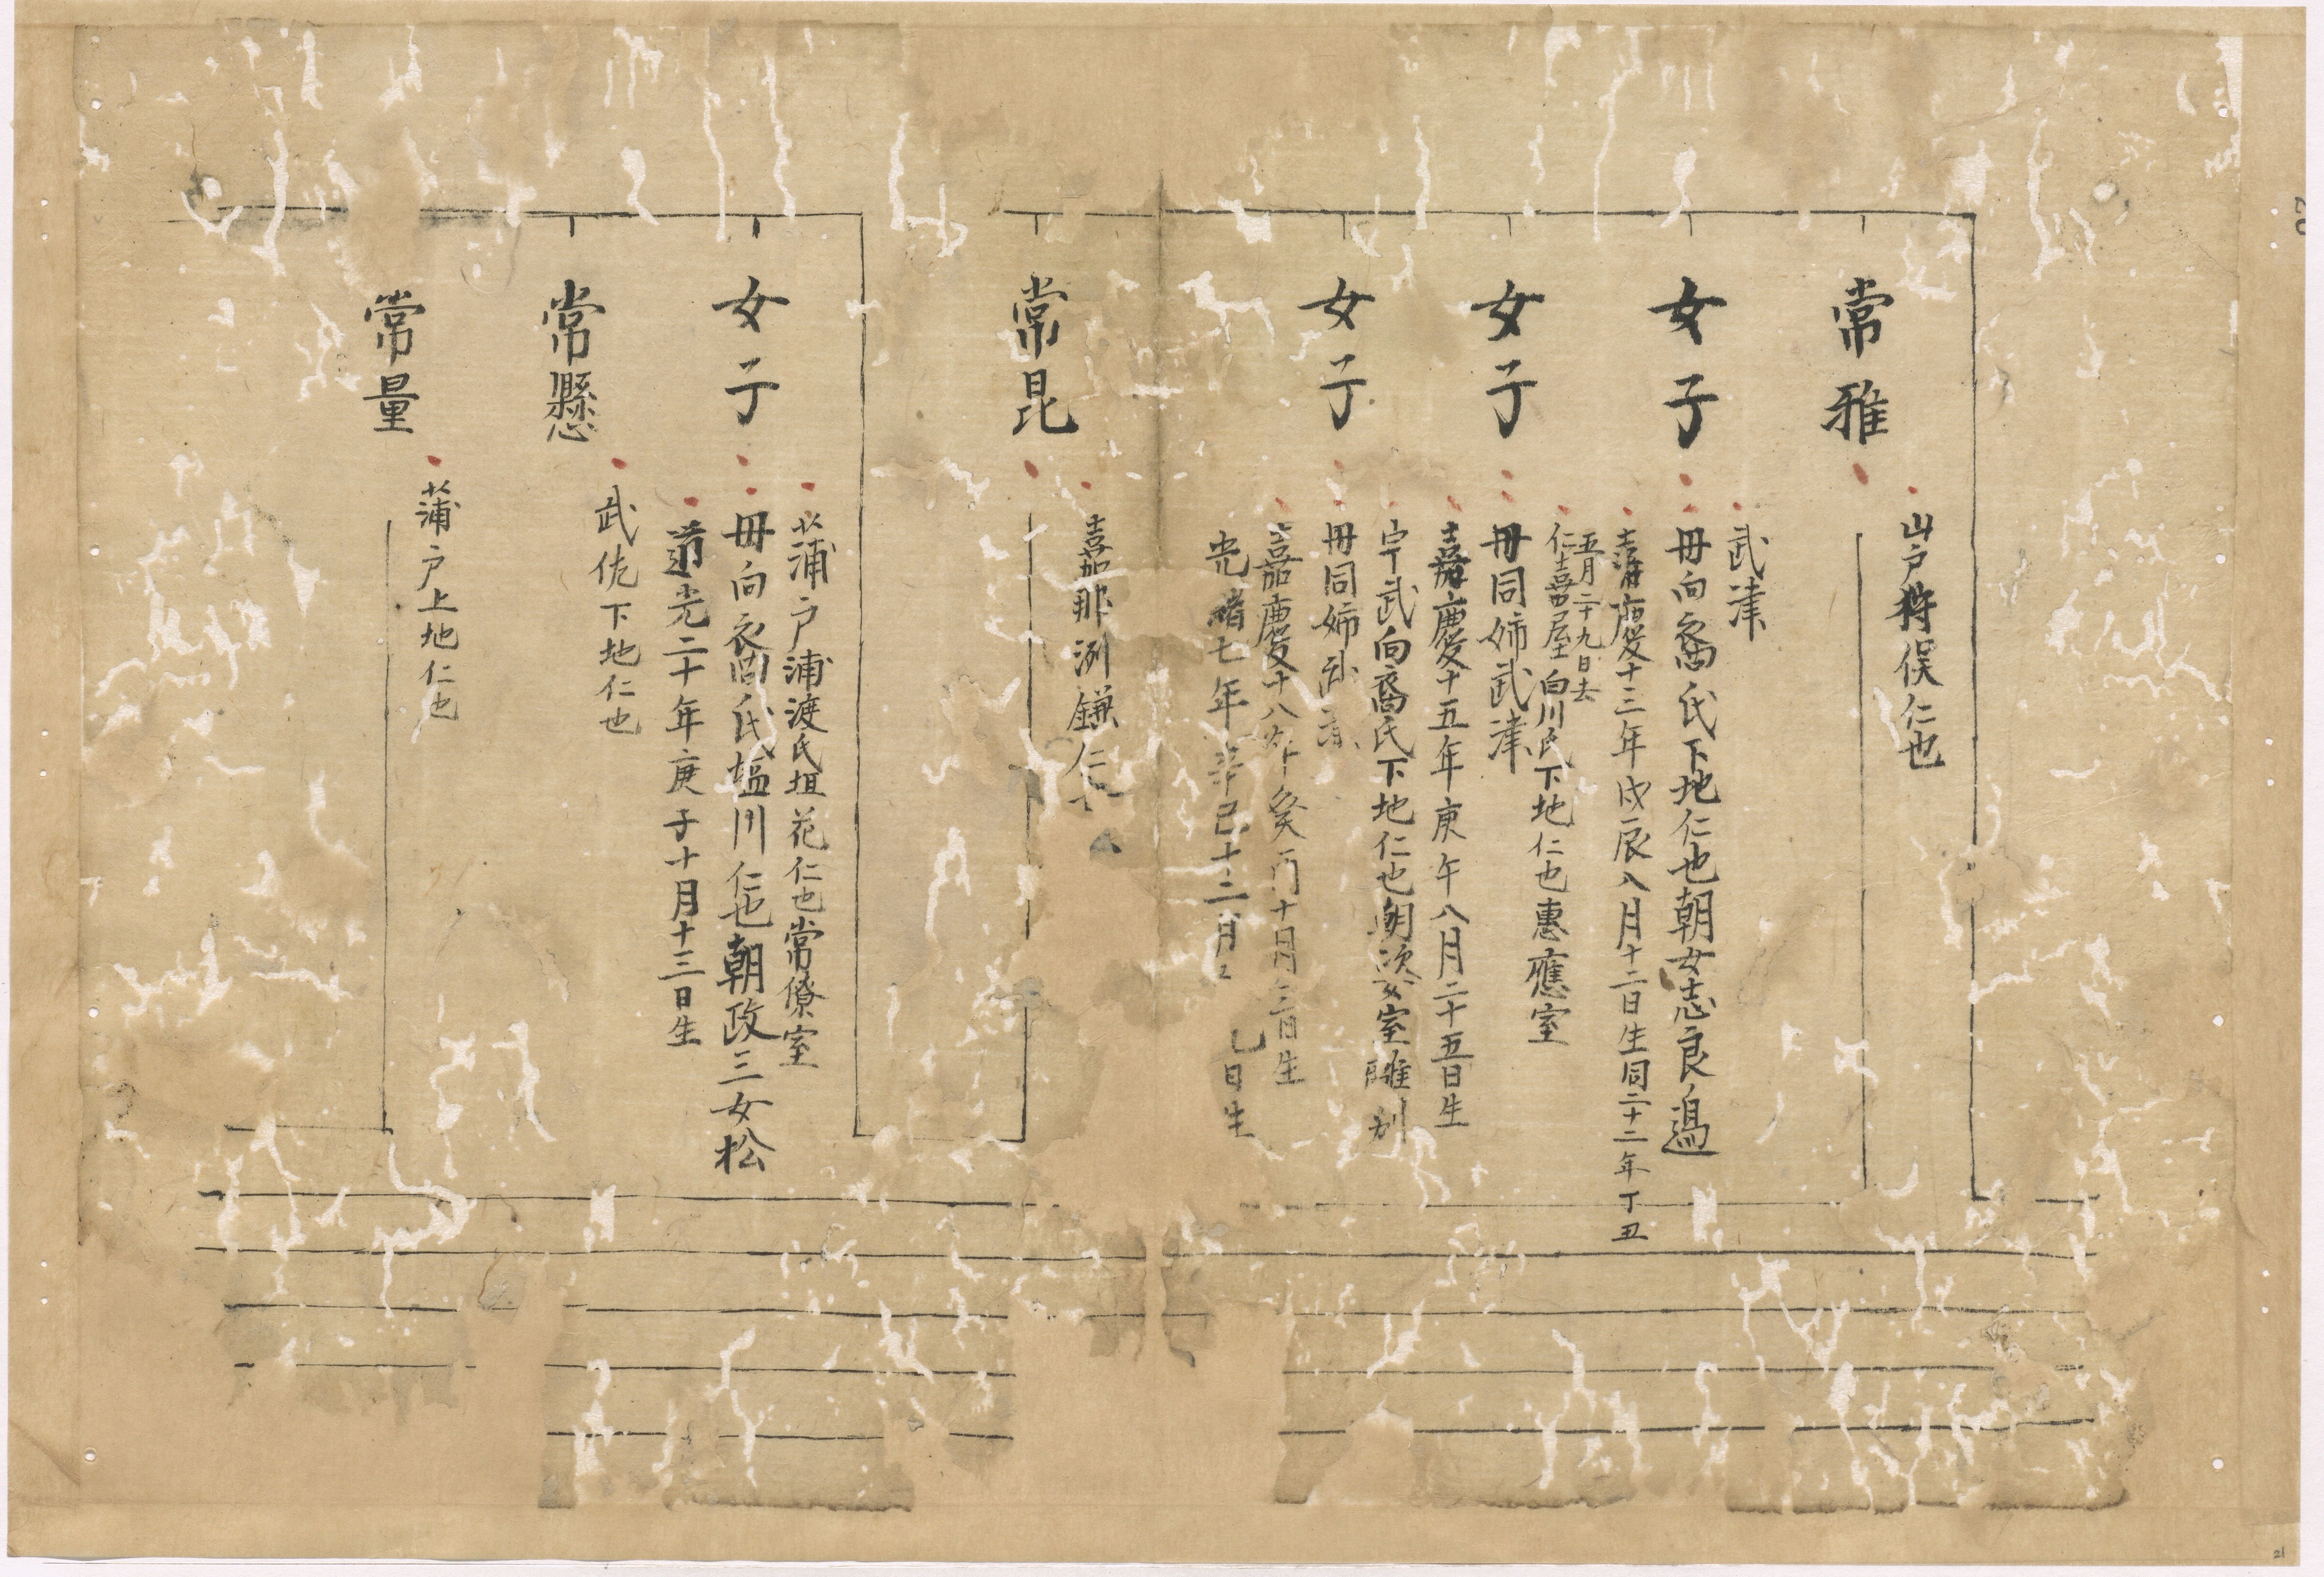 常雅
山戸狩俣仁也
女子
武津
毋向裔氏下地仁也朝女志良過
嘉慶十三年戊辰八月十二日生同二十二年丁丑
五月二十九日去
女子
仁喜屋白川氏下地仁也惠應室
毋同姉武津
嘉慶十五年庚午八月二十五日生
女子
宇武向裔氏下地仁也朝次妾室離別
毋同姉武津
嘉慶十八年癸酉十月三日生
光緒七年辛巳十二月
日生
常昆
嘉那洌鎌仁
女子
蒲戸浦渡氏垣花仁也常僚室
毋向裔氏塩川仁也朝政三女松
道光二十年庚子十月十三日生
常懸
武佐下地仁也
常量
蒲戸上地仁也
20
21